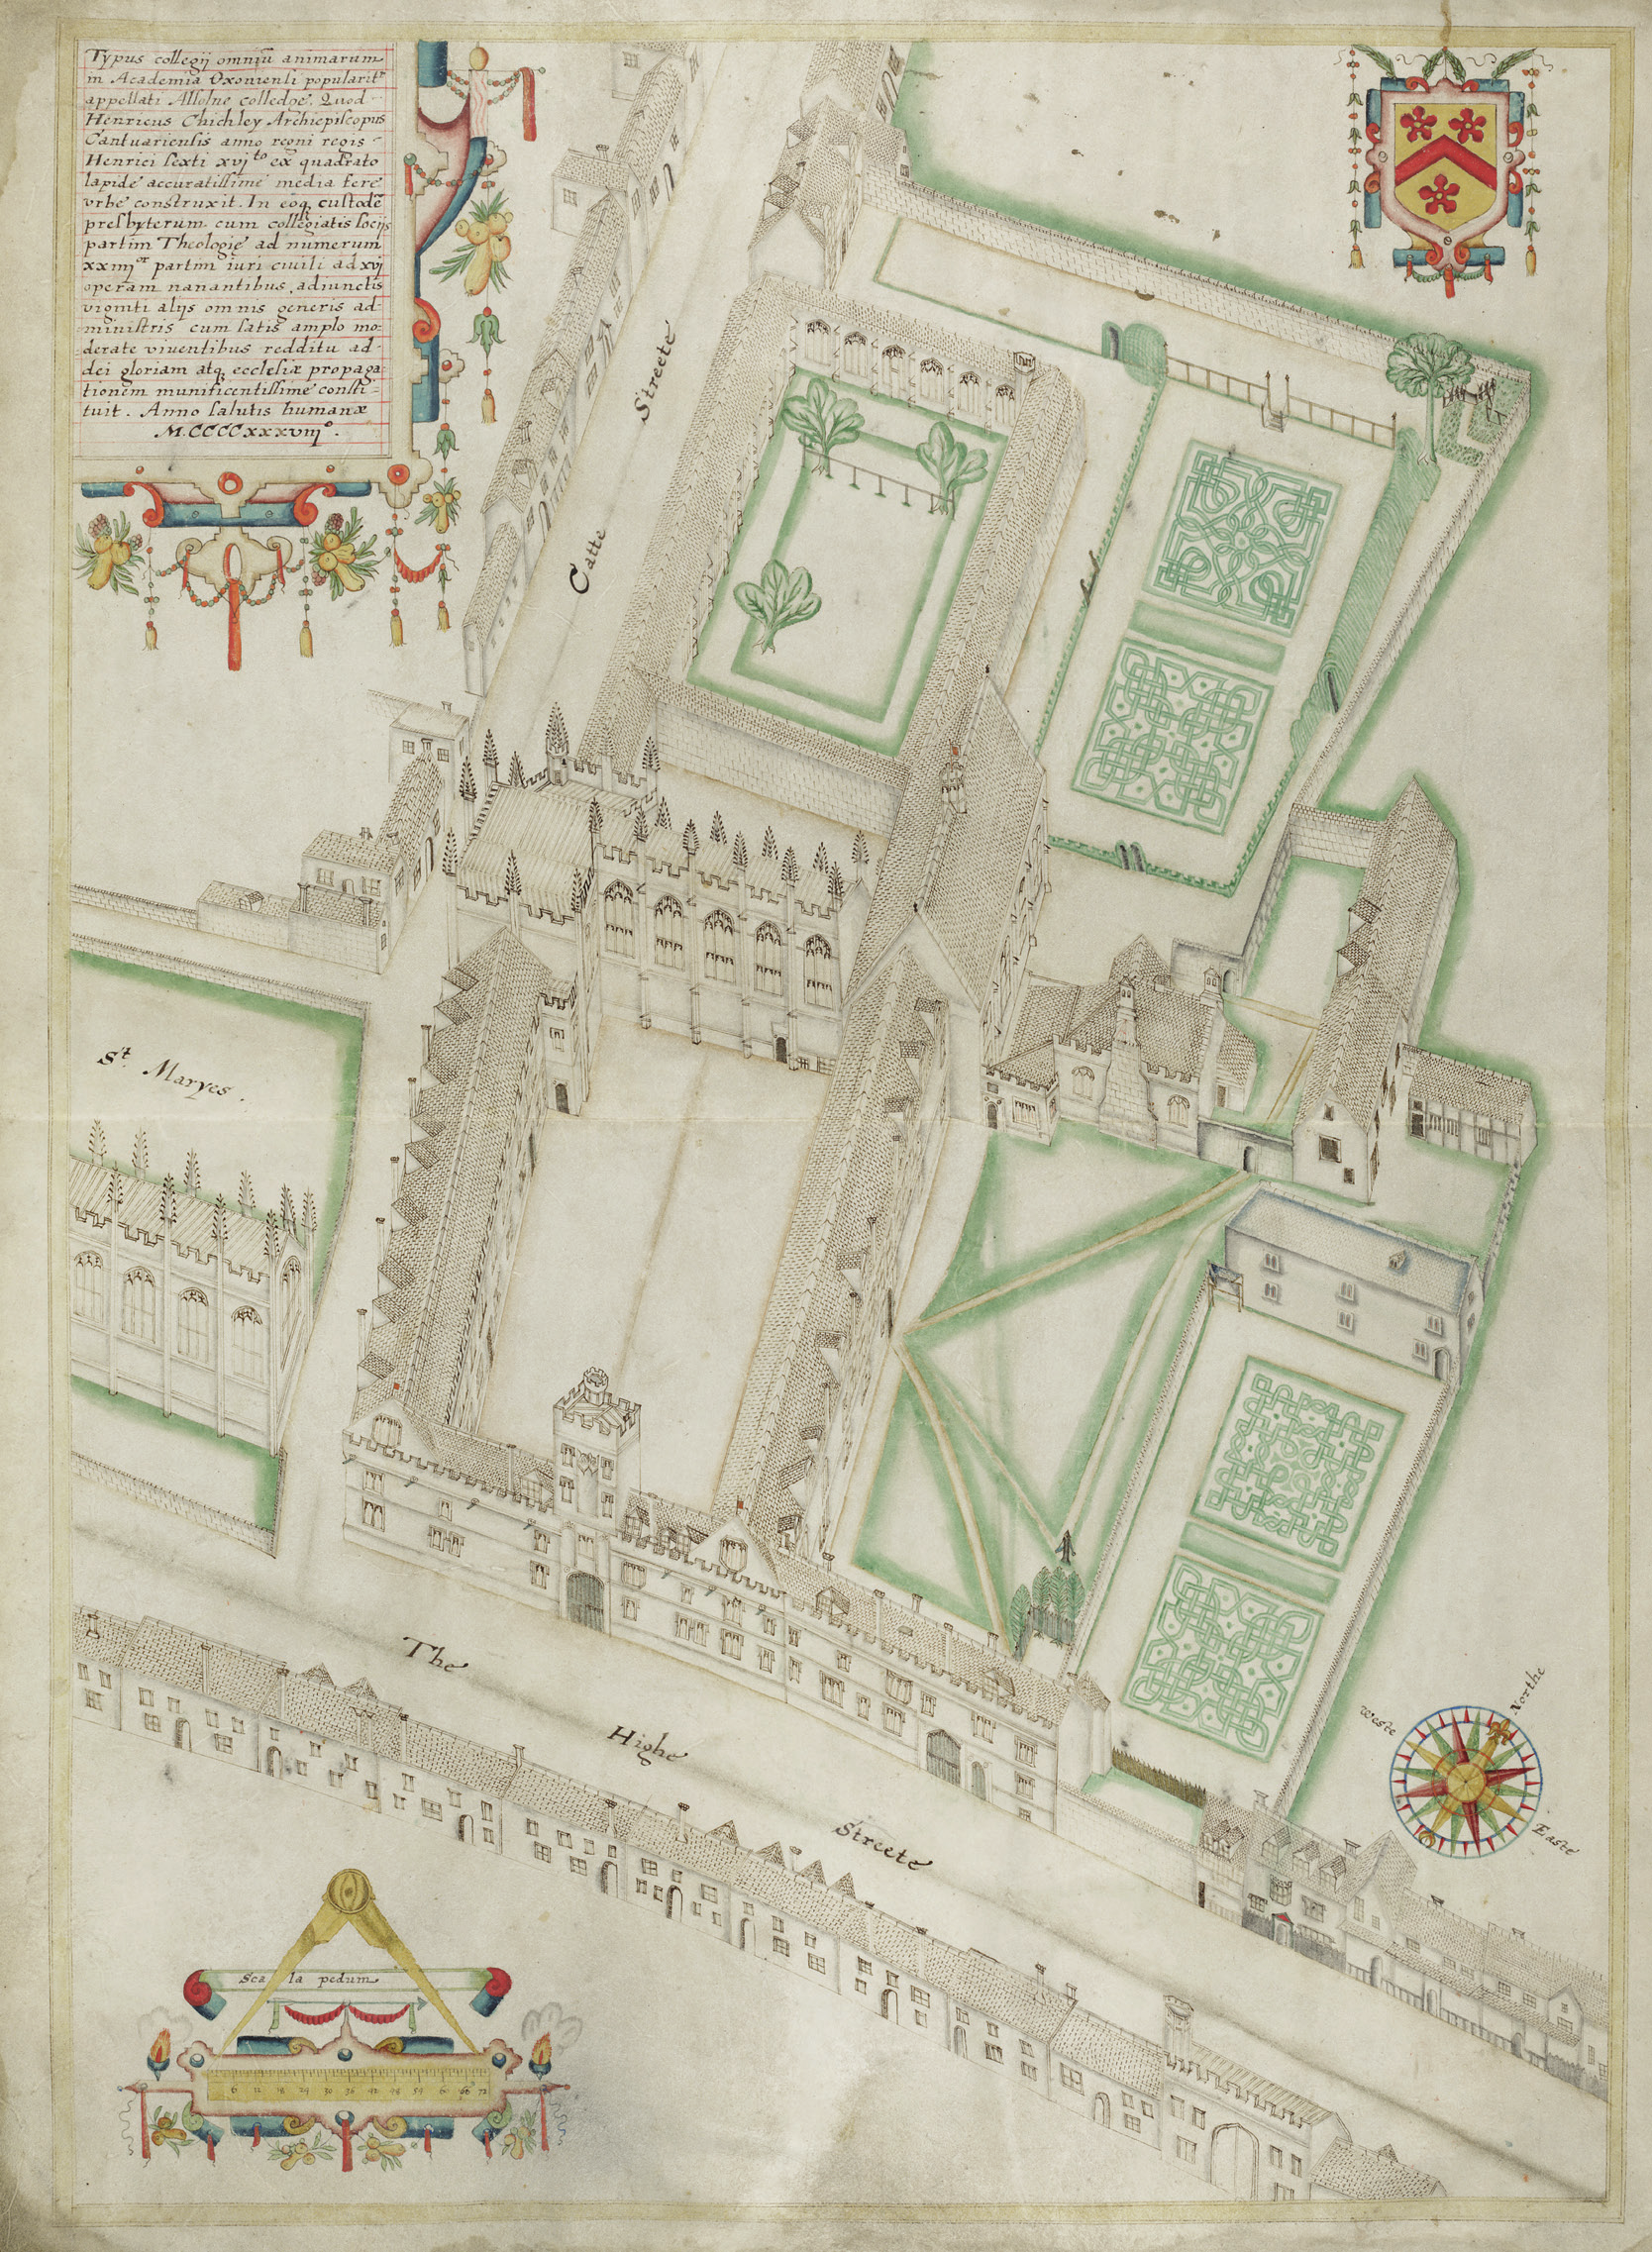 Typus collegij omniū animarum
in Academia Oxoniensi popularitr
appellati Allsolne colledge. Quod
Henricus Chichley Archiepiscopus
Cantuariensis anno regni regis
Henrici sexti xvjto ex quadrato
lapide accuratissime media fere
vrbe construxit. In eoq custodē
presbyterum cum collegiatis socijs
partim Theologię ad numerum
xxiiijor partim iuri ciuili ad xvj
operam nanantibus, adiunctis
viginti alijs omnis generis ad-
ministris cum satis amplo mo:
derate viventibus redditu ad-
dei gloriam atq ecclesiæ propaga
tionem munificentissime consti-
tuit. Anno salutis humanæ
M.CCCCxxxviijo.
Catte Streete
St. Maryes.
The Highe Streete
Northe
Weste
Easte
Scala pedum
6 12 18 24 30 36 42 48 54 60 66 72